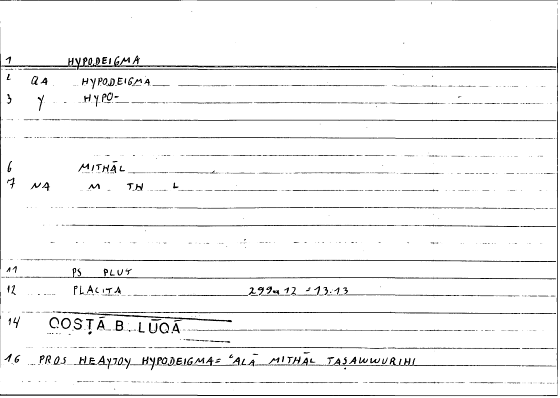 1 HYPODEIGMA
2 QA HYPODEIGMA
3 Y HYPO-
6 MITHĀL
7 NA M TH L
11 PS PLUT
12 PLACITA 299a12 = 13.13
14 QOSṬĀ B. LŪQĀ
16 PROS HEAYTOY HYPODEIGMA = ʿALĀ MITHĀL TAṢAWWURIHI